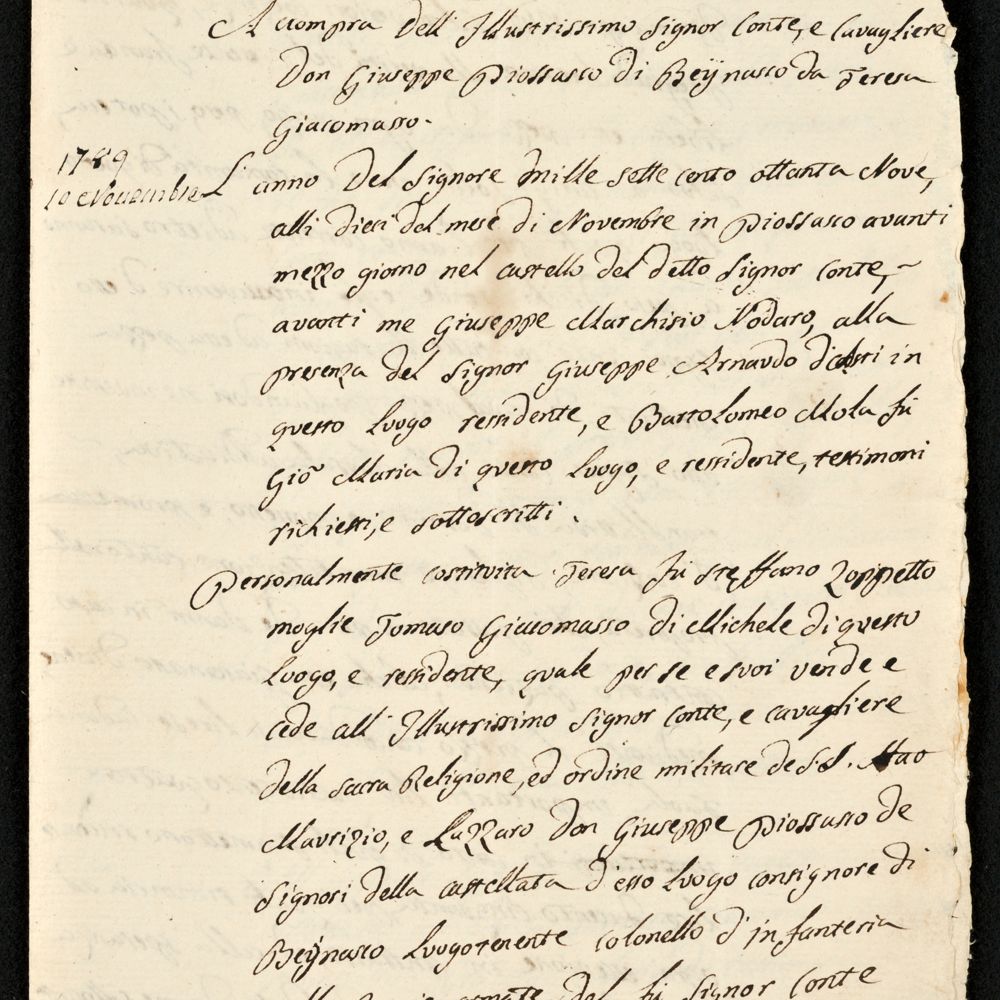 Accompra dell' Illustrissimo Signor Conte, e Cavagliere
Don Giuseppe Piossasco di Beÿnasco da Teresa
Giacomasso.
1789
10 Novembre L' anno del Signore mille sette cento ottanta Nove,
alli dieci del mese di Novembre in Piossasco avanti
mezzo giorno nel castello del detto Signor Conte,
avanti me Giuseppe Marchisio Nodaro, alla
presenza del Signor Giuseppe Arnaudo d'Asti in
questo luogo ressidente, e Bartolomeo Mola fù
Gio Maria di questo luogo, e ressidente, testimoni
richiesti, e sottoscritti.
Personalmente costituita Teresa fù Steffano Zoppetto
moglie Tomaso Giacomasso di Michele di questo
luogo, e ressidente, quale per se e suoi vende e
cede all' Illustrissimo Signor Conte, e cavagliere
della sacra Religione, ed ordine militare de S.S.
Maurizio, e Lazzaro Don Giuseppe Piossasco de
Signori della castellata d'esso luogo consignore di
Beÿnasco luogotenente colonello d'infanteria
armate del fù Signor Conte